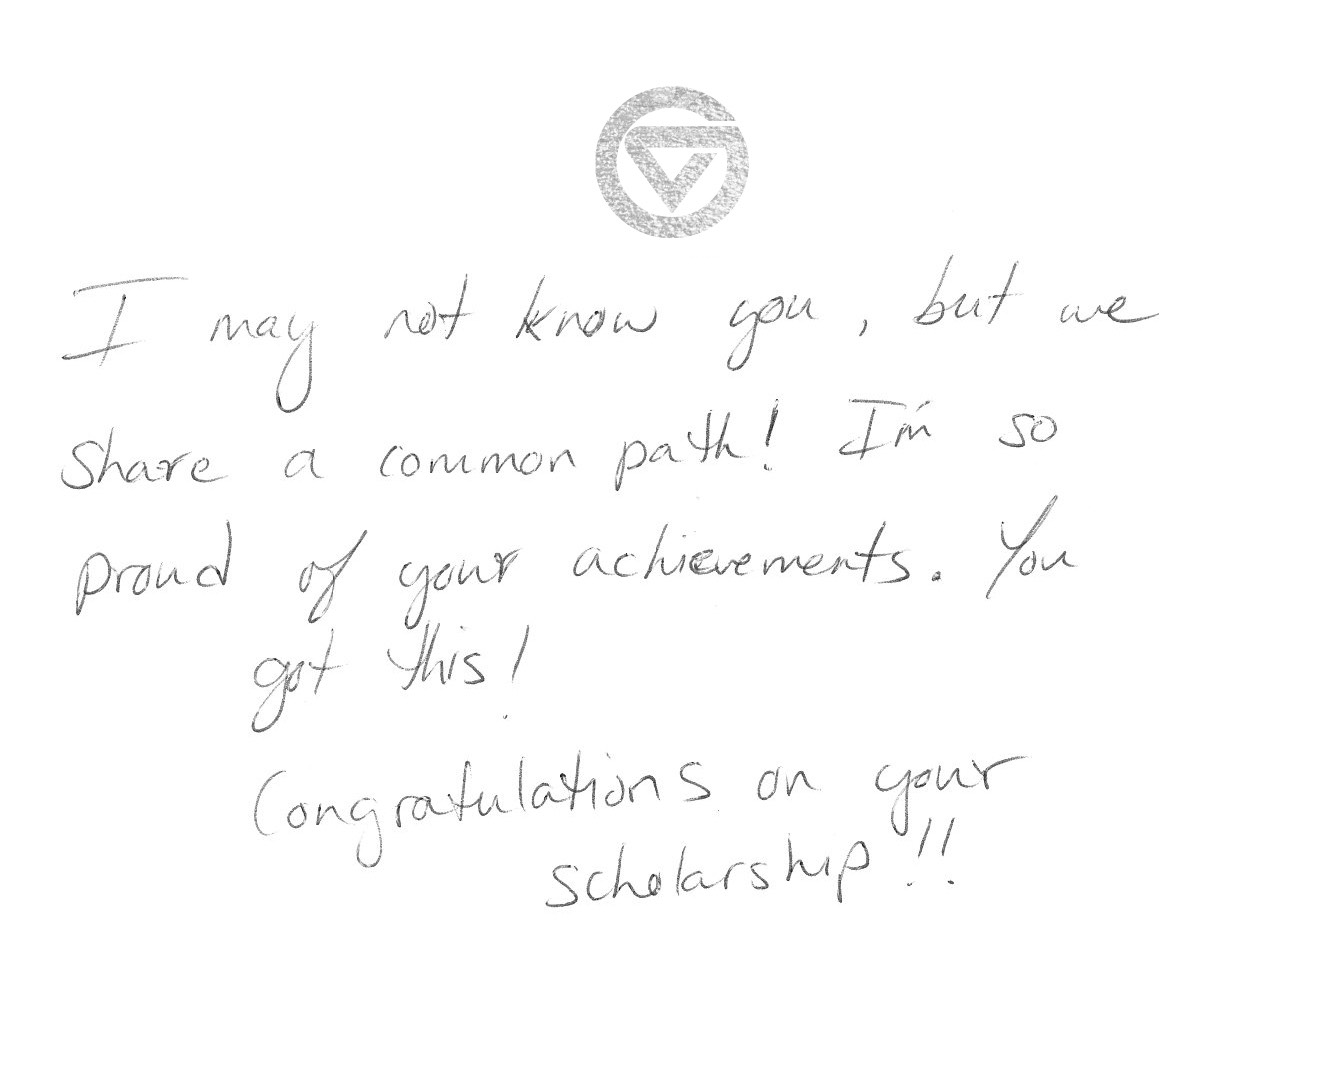 I may not know you, but we
share a common path! I'm so
proud of your achievements. You
got this!
Congratulations on your
scholarship!!